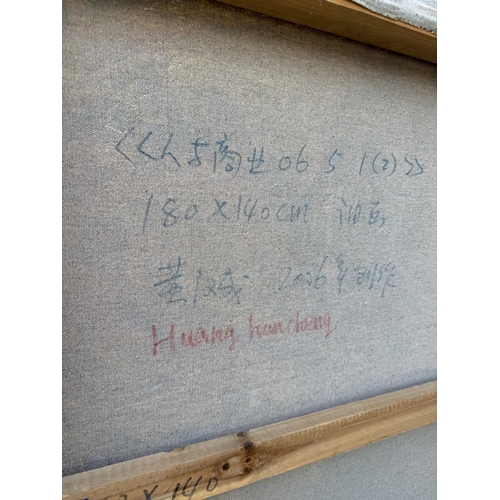 《人与商业06 5 1(2)》
180×140cm 油画
黄汉成 2006年创作
Huang hancheng
×140